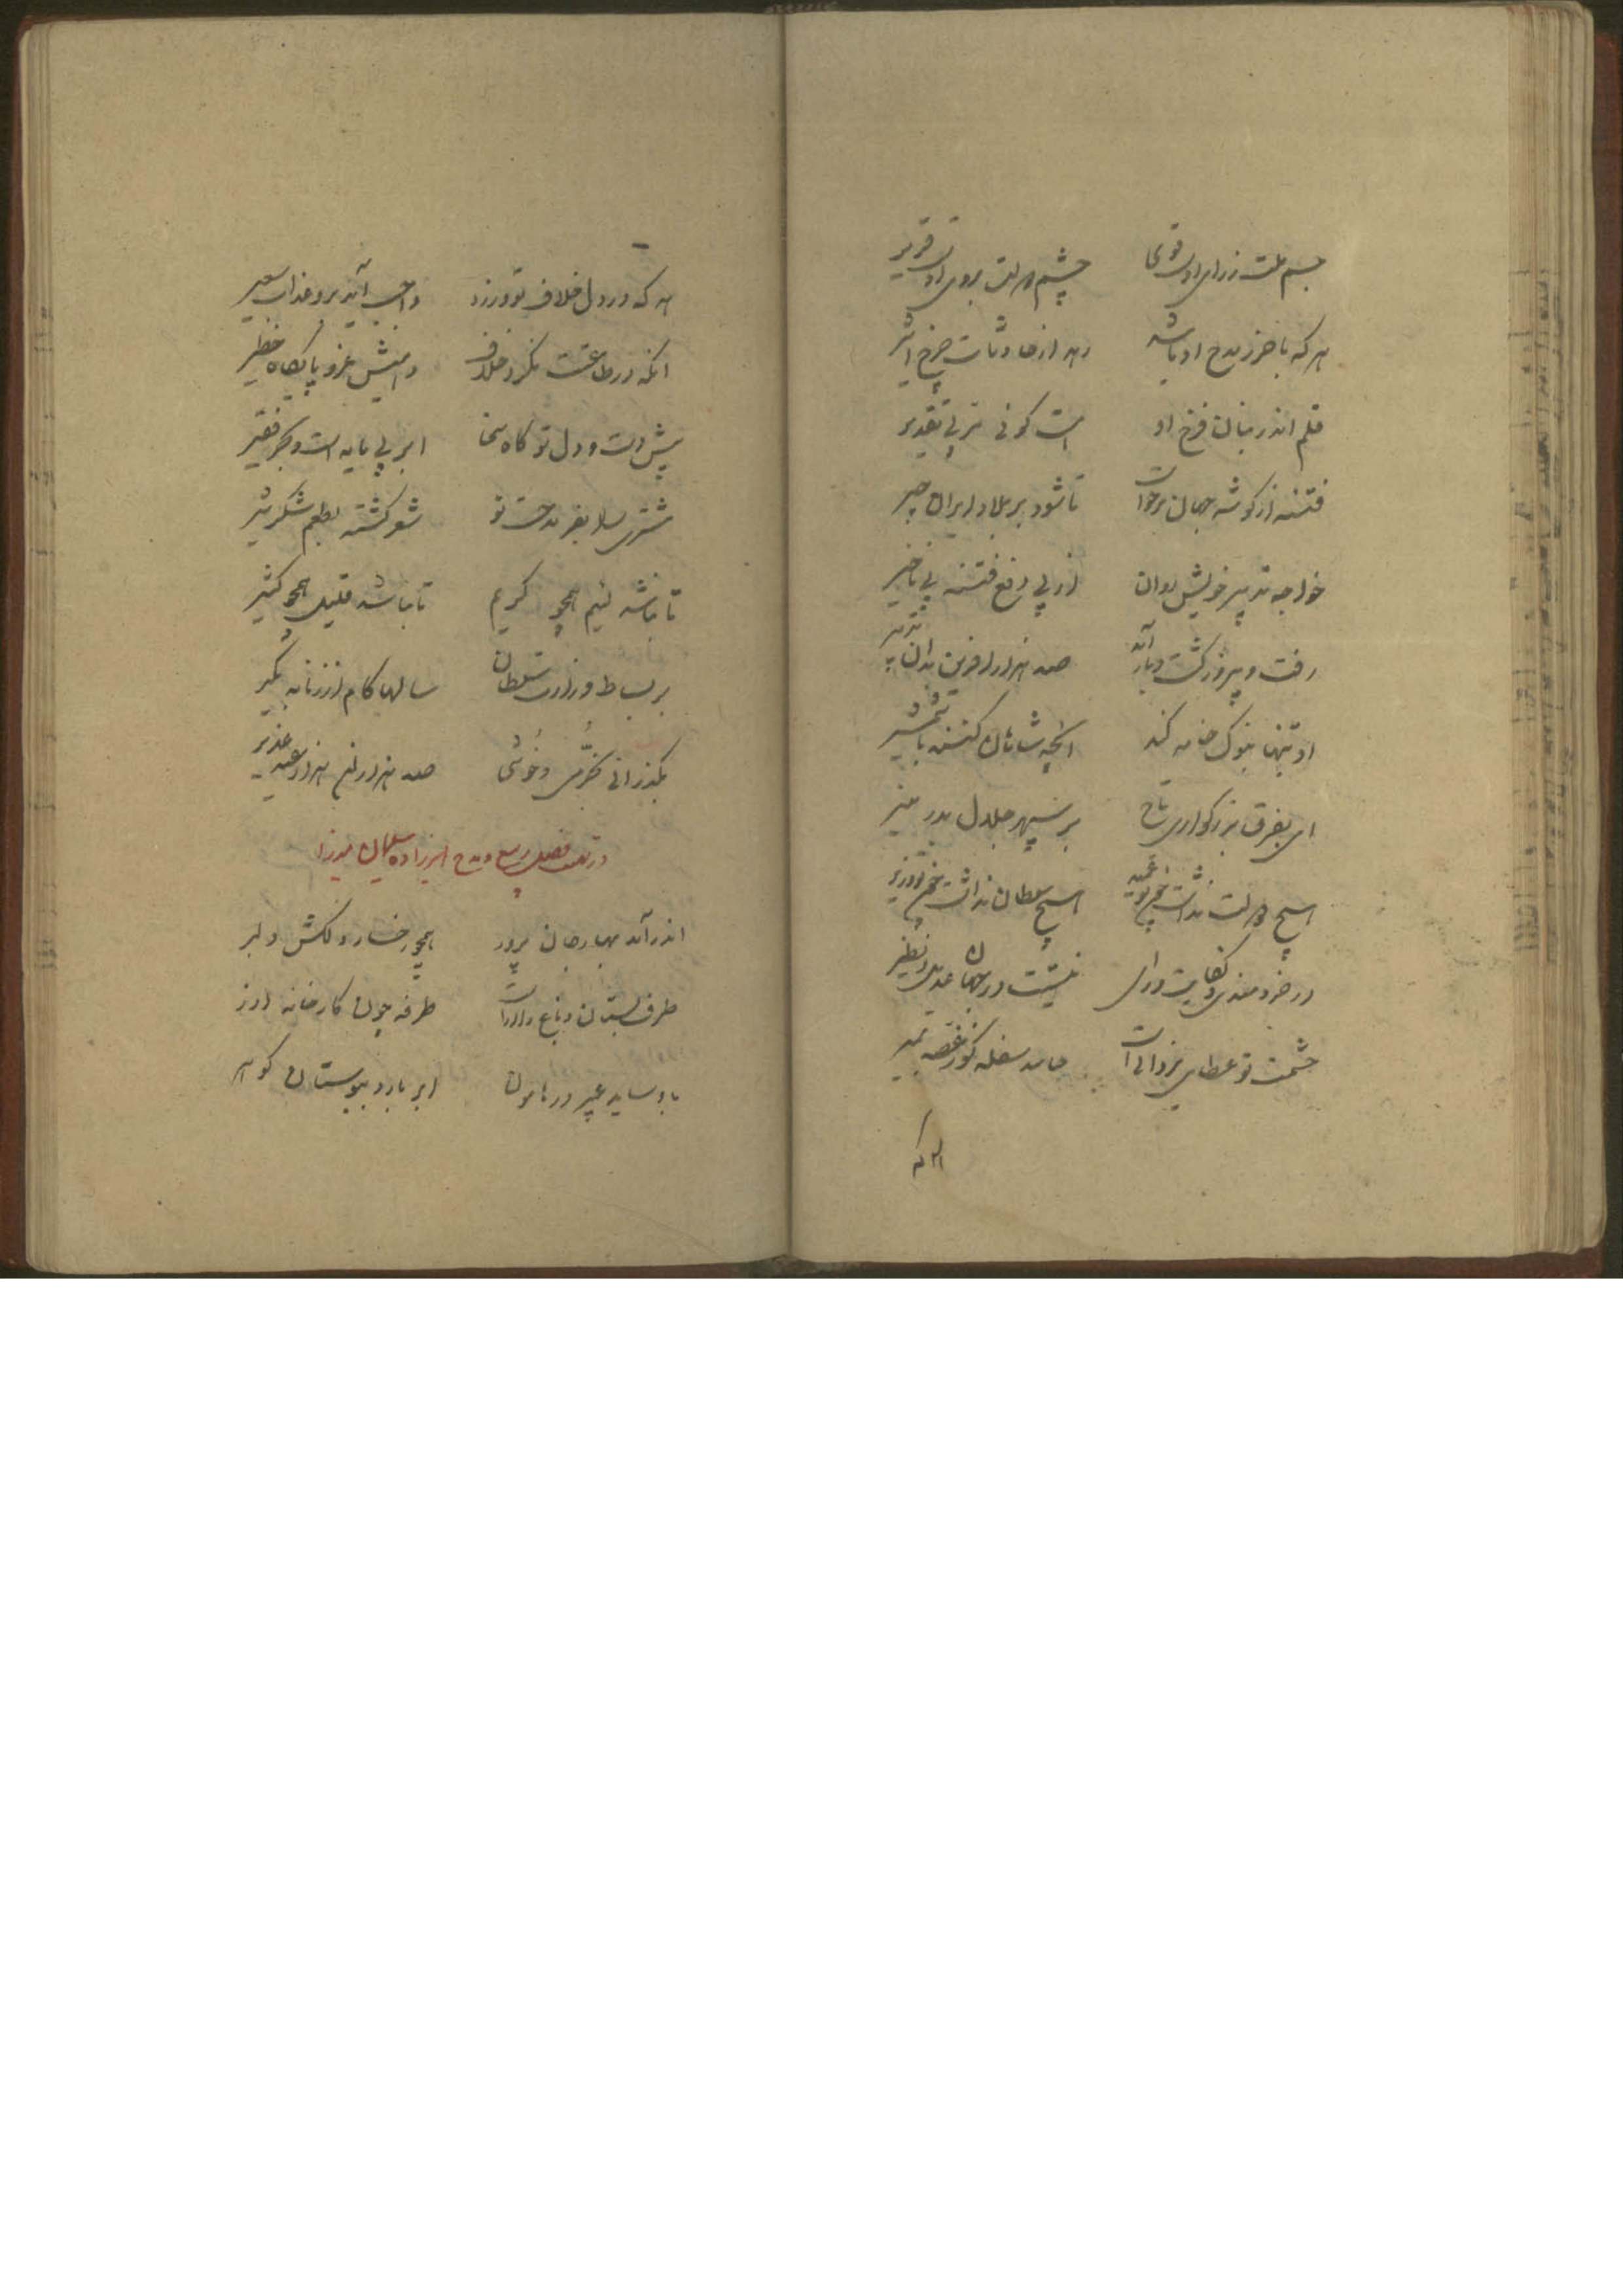 جسم ملت ز رای او قوی
چشم دولت بروی او قریر
هر که با حرز مدح او باشد
رهد از حادثات چرخ اثیر
قلم اندر بنان فرخ او
است کوئی ترپی تقدیر
فتنه از کوشه جهان برخواست
تا شود بر بلاد ایران چیر
خواجه تدبیر خویش روان
از پی دفع فتنه بی تاخیر
رفت و پیروز کشت و باز آمد
صد هزار آفرین بدان تدبیر
او تنها بنوک خامه کند
انچه شاهان کنند با شمشیر
ای بفرق بزرکواری تاج
بر سپهر جلال بدر منیر
هیچ دولت نداشت چو تو عمید
هیچ سلطان نداشت چو تو وزیر
در خردمندی و کفایت و رای
نیست در جهان عدیل و نظیر
حشمت تو عطای یزدانی است
حاسد سفله کو ز غصه بمیر
هر که
هر که در دل خلاف تو ورزد
واجب آید برو عذاب سعیر
انکه در طاعتت نکرد خلاف
دادیش عز و پایکاه خطیر
پیش دست و دل تو کاه سخا
ابر بی مایه است و بحر فقیر
مشتری سا بفر مدحت تو
شعر کشته بطعم شکر و شیر
تا نباشد لئیم همچو کریم
تا نباشد قلیل همچو کثیر
بر بساط وزارت سلطان
سالها کام از زمانه بکیر
بکذرانی بخرّمی و خُوشی
صد هزاران هزار عید غدیر
در تهنیت فصل ربیع و مدح امیرزاده سلیمان میرزا
اندر آمد بهار جان پرور
همچو رخسار دلکش دلبر
طرف بستان و باغ را آراست
طرفه چون کارخانه آزر
باد ساید عبیر در هامون
ابر بارد ببوستان کوهر